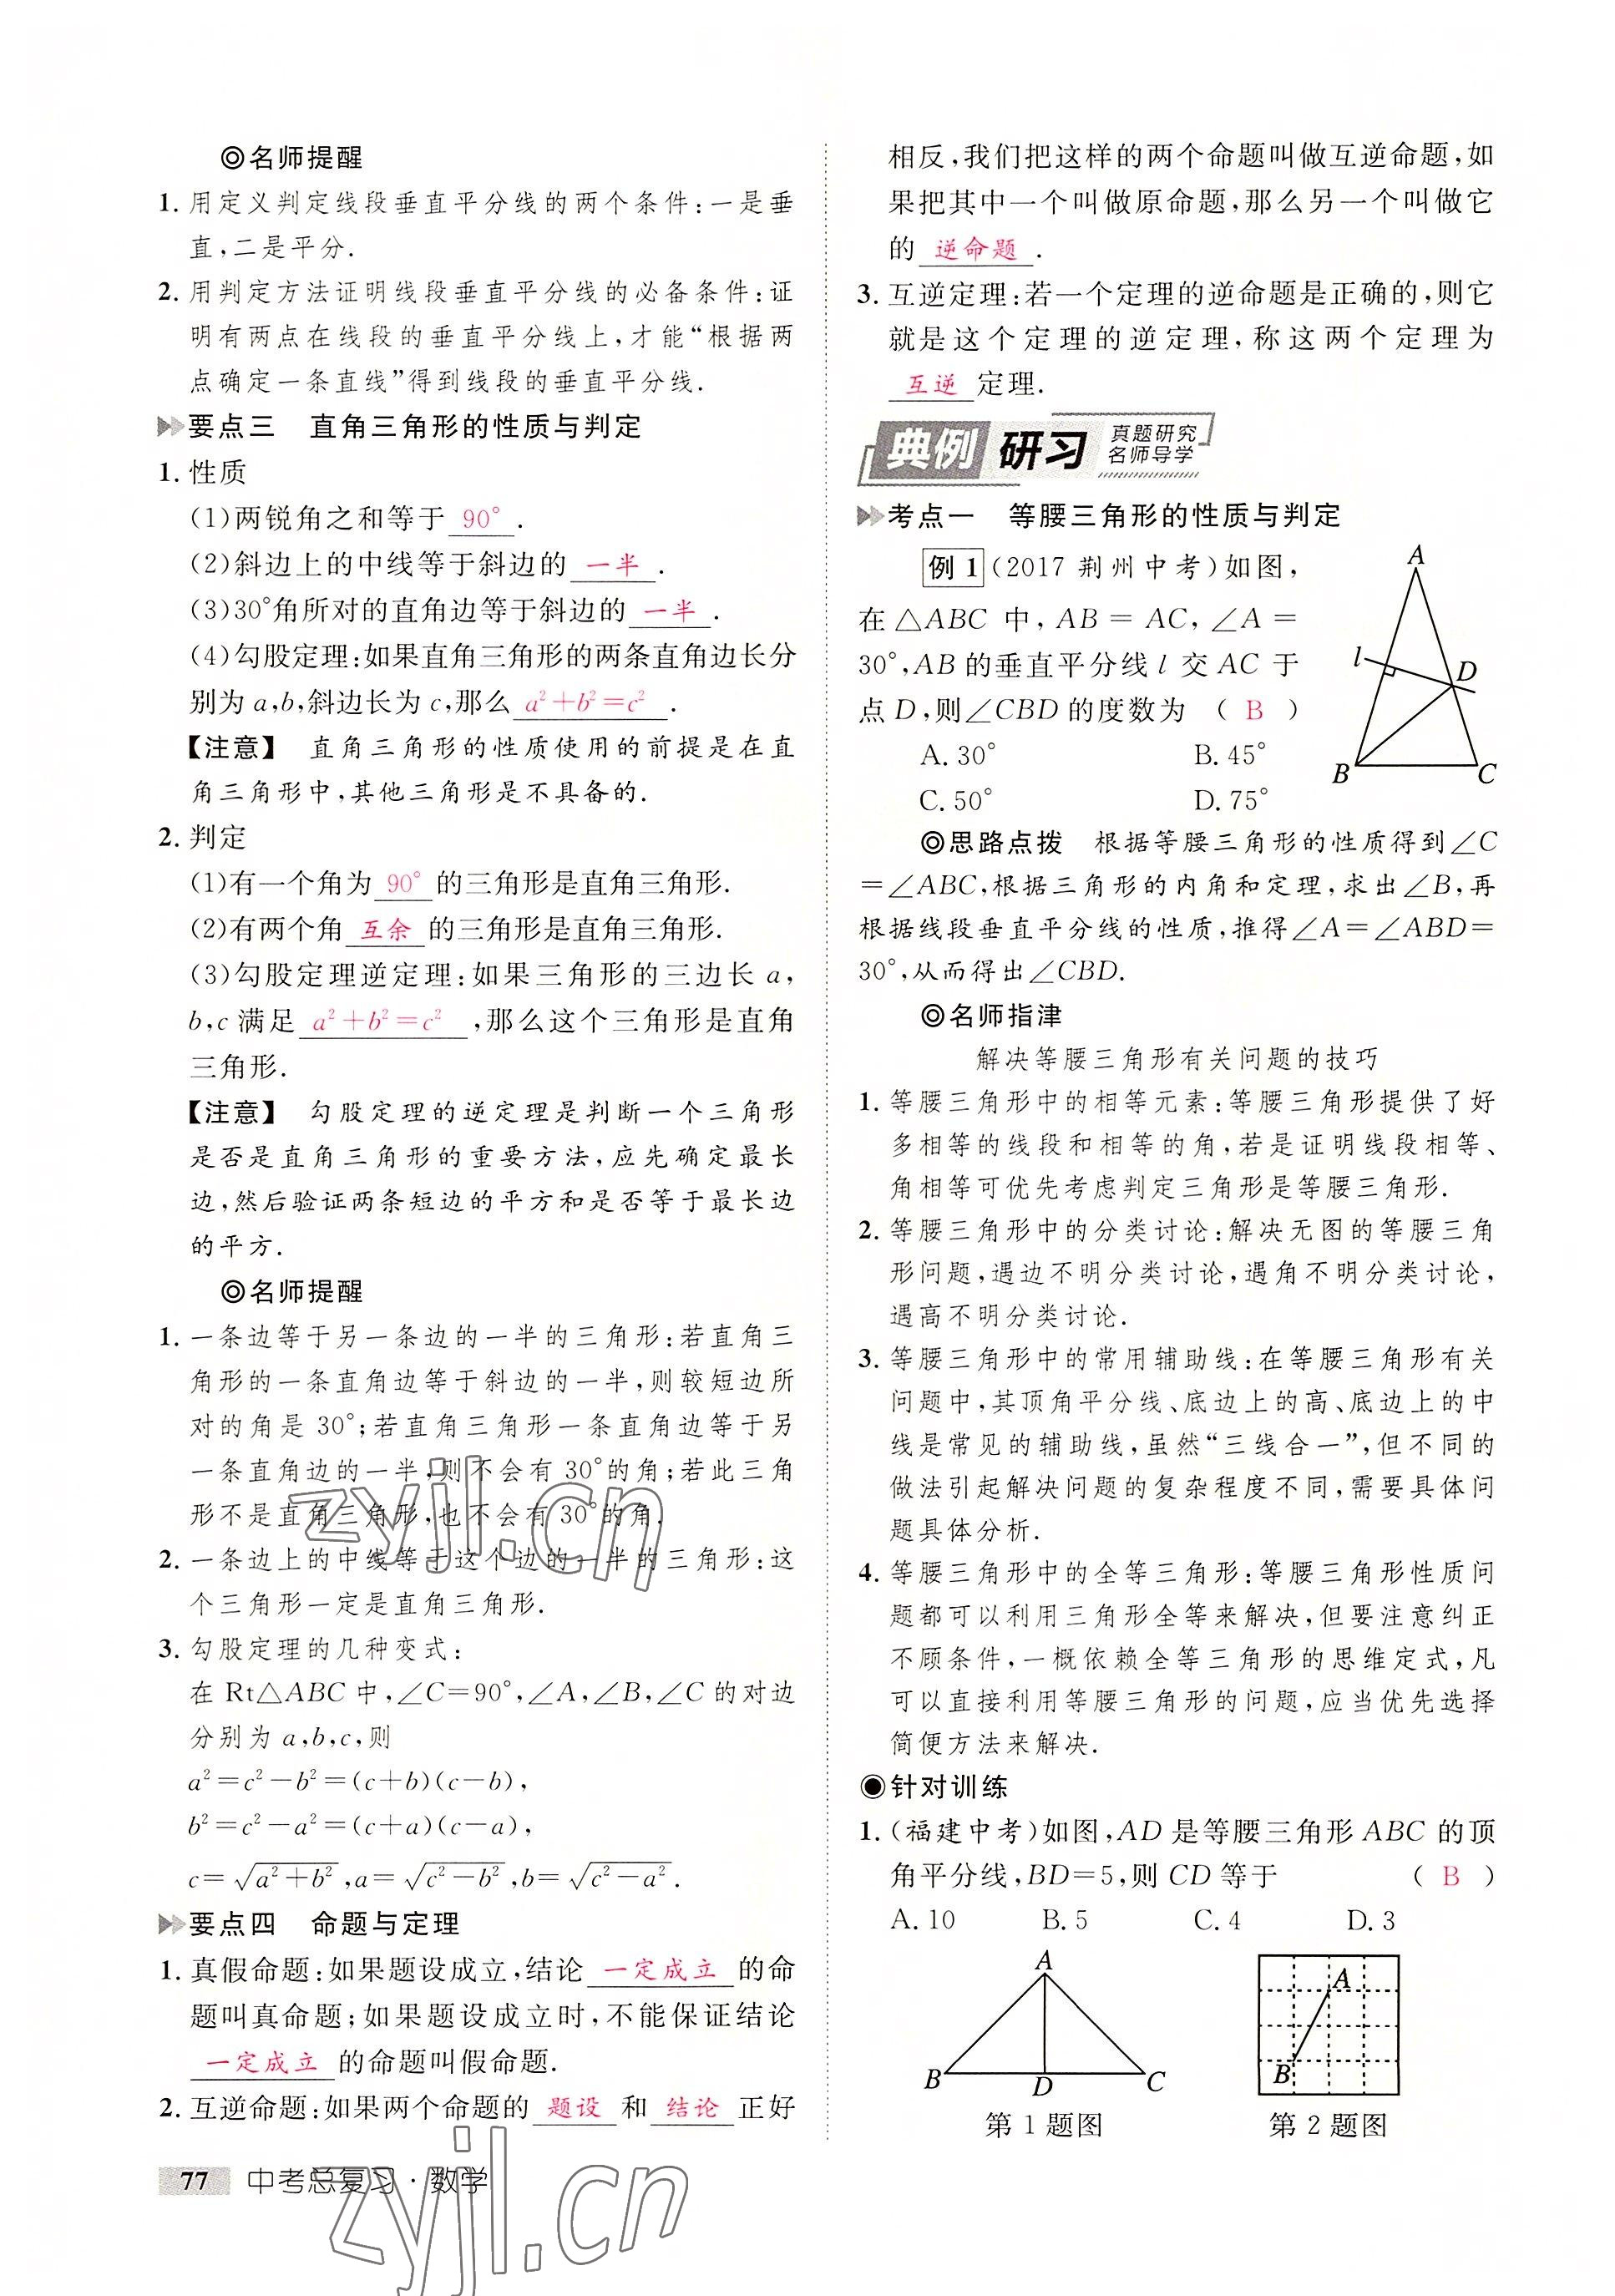 ◎名师提醒
1. 用定义判定线段垂直平分线的两个条件:一是垂
直,二是平分.
2. 用判定方法证明线段垂直平分线的必备条件:证
明有两点在线段的垂直平分线上,才能“根据两
点确定一条直线”得到线段的垂直平分线.
要点三 直角三角形的性质与判定
1. 性质
(1)两锐角之和等于 90°.
(2)斜边上的中线等于斜边的 一半.
(3)30°角所对的直角边等于斜边的 一半.
(4)勾股定理:如果直角三角形的两条直角边长分
别为 a,b,斜边长为 c,那么 a²+b²=c².
【注意】 直角三角形的性质使用的前提是在直
角三角形中,其他三角形是不具备的.
2. 判定
(1)有一个角为 90° 的三角形是直角三角形.
(2)有两个角 互余 的三角形是直角三角形.
(3)勾股定理逆定理:如果三角形的三边长 a,
b,c 满足 a²+b²=c²,那么这个三角形是直角
三角形.
【注意】 勾股定理的逆定理是判断一个三角形
是否是直角三角形的重要方法,应先确定最长
边,然后验证两条短边的平方和是否等于最长边
的平方.
◎名师提醒
1. 一条边等于另一条边的一半的三角形:若直角三
角形的一条直角边等于斜边的一半,则较短边所
对的角是 30°;若直角三角形一条直角边等于另
一条直角边的一半,则不会有 30°的角;若此三角
形不是直角三角形,也不会有 30°的角.
2. 一条边上的中线等于这个边的一半的三角形:这
个三角形一定是直角三角形.
3. 勾股定理的几种变式:
在 Rt△ABC 中,∠C=90°,∠A,∠B,∠C 的对边
分别为 a,b,c,则
a²=c²-b²=(c+b)(c-b),
b²=c²-a²=(c+a)(c-a),
c=√(a²+b²),a=√(c²-b²),b=√(c²-a²).
要点四 命题与定理
1. 真假命题:如果题设成立,结论 一定成立 的命
题叫真命题;如果题设成立时,不能保证结论
一定成立 的命题叫假命题.
2. 互逆命题:如果两个命题的 题设 和 结论 正好
77 中考总复习·数学
相反,我们把这样的两个命题叫做互逆命题,如
果把其中一个叫做原命题,那么另一个叫做它
的 逆命题.
3. 互逆定理:若一个定理的逆命题是正确的,则它
就是这个定理的逆定理,称这两个定理为
互逆 定理.
典例 研习 真题研究
名师导学
考点一 等腰三角形的性质与判定
例 1 (2017 荆州中考)如图,
在△ABC 中, AB = AC, ∠A =
30°,AB 的垂直平分线 l 交 AC 于
点 D,则∠CBD 的度数为 ( B )
A. 30° B. 45°
C. 50° D. 75°
A
l
D
B C
◎思路点拨 根据等腰三角形的性质得到∠C
=∠ABC,根据三角形的内角和定理,求出∠B,再
根据线段垂直平分线的性质,推得∠A=∠ABD=
30°,从而得出∠CBD.
◎名师指津
解决等腰三角形有关问题的技巧
1. 等腰三角形中的相等元素:等腰三角形提供了好
多相等的线段和相等的角,若是证明线段相等、
角相等可优先考虑判定三角形是等腰三角形.
2. 等腰三角形中的分类讨论:解决无图的等腰三角
形问题,遇边不明分类讨论,遇角不明分类讨论,
遇高不明分类讨论.
3. 等腰三角形中的常用辅助线:在等腰三角形有关
问题中,其顶角平分线、底边上的高、底边上的中
线是常见的辅助线,虽然“三线合一”,但不同的
做法引起解决问题的复杂程度不同,需要具体问
题具体分析.
4. 等腰三角形中的全等三角形:等腰三角形性质问
题都可以利用三角形全等来解决,但要注意纠正
不顾条件,一概依赖全等三角形的思维定式,凡
可以直接利用等腰三角形的问题,应当优先选择
简便方法来解决.
◉针对训练
1. (福建中考)如图,AD 是等腰三角形 ABC 的顶
角平分线,BD=5,则 CD 等于 ( B )
A. 10 B. 5 C. 4 D. 3
A
B D C
第 1 题图
A
B
第 2 题图
zyjl.cn
zyjl.cn